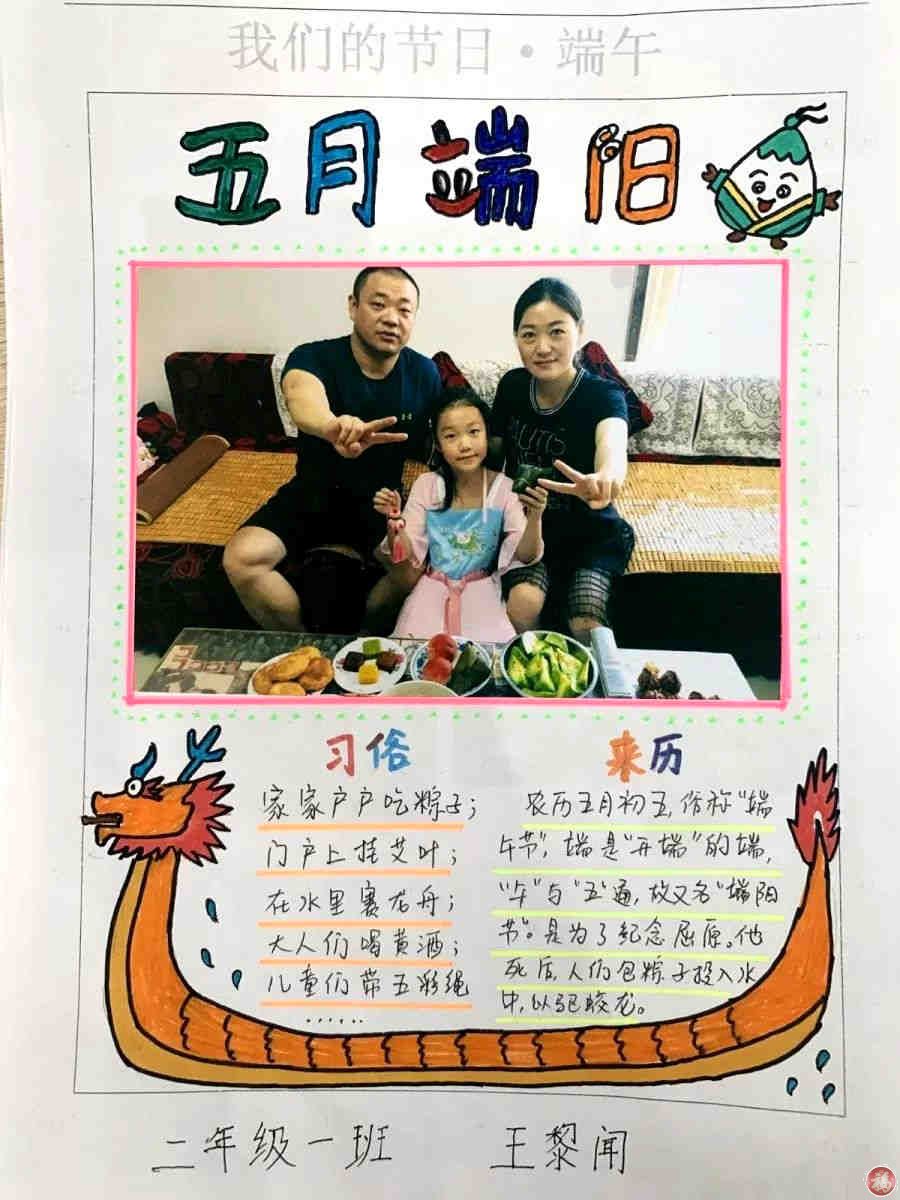 我们的节日·端午
五月端阳
习俗
家家户户吃粽子；
门户上挂艾叶；
在水里赛龙舟；
大人们喝黄酒；
儿童们带五彩绳
......
来历
农历五月初五，俗称“端
午节”，端是“开端”的端，
“午”与“五”通，故又名“端阳
节”。是为了纪念屈原。他
死后，人们包粽子投入水
中，以驱蛟龙。
二年级一班 王黎闻
福